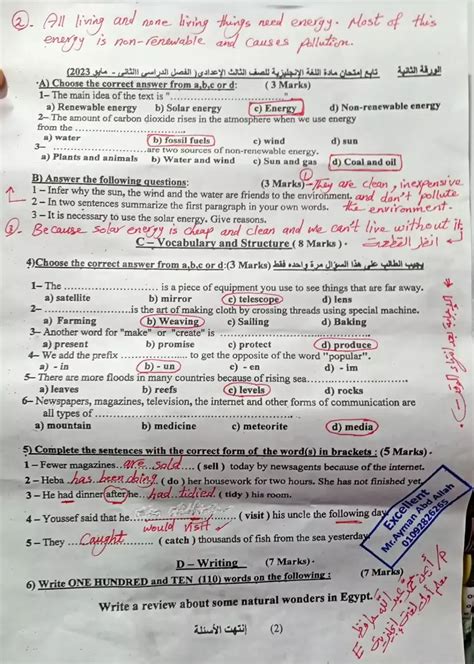 ②. All living and none living things need energy. Most of this
energy is non-renewable and causes pollution.
الورقة الثانية
تابع إمتحان مادة اللغة الإنجليزية للصف الثالث الإعدادى (الفصل الدراسى الثانى - مايو 2023)
A) Choose the correct answer from a,b,c or d: ( 3 Marks)
1– The main idea of the text is "..............................
a) Renewable energy b) Solar energy c) Energy d) Non-renewable energy
2– The amount of carbon dioxide rises in the atmosphere when we use energy
from the ....................
a) water b) fossil fuels c) wind d) sun
3– ..............................are two sources of non-renewable energy.
a) Plants and animals b) Water and wind c) Sun and gas d) Coal and oil
B) Answer the following questions: (3 Marks) ① They are clean, inexpensive
1 – Infer why the sun, the wind and the water are friends to the environment. and don't pollute
2 – In two sentences summarize the first paragraph in your own words. the environment.
3 – It is necessary to use the solar energy. Give reasons.
③. Because solar energy is cheap and clean and we can't live without it.
C – Vocabulary and Structure ( 8 Marks) ·
4)Choose the correct answer from a,b,c or d:(3 Marks) يجيب الطالب على هذا السؤال مرة واحده فقط
1– The .............................. is a piece of equipment you use to see things that are far away.
a) satellite b) mirror c) telescope d) lens
2– ..............................is the art of making cloth by crossing threads using special machine.
a) Farming b) Weaving c) Sailing d) Baking
3– Another word for "make" or "create" is ....................
a) present b) promise c) protect d) produce
4– We add the prefix .................... to get the opposite of the word "popular".
a) - in b) - un c) - en d) - im
5– There are more floods in many countries because of rising sea....................
a) leaves b) reefs c) levels d) rocks
6– Newspapers, magazines, television, the internet and other forms of communication are
all types of ....................
a) mountain b) medicine c) meteorite d) media
5) Complete the sentences with the correct form of the word(s) in brackets : (5 Marks) ·
1 – Fewer magazines...are sold.... ( sell ) today by newsagents because of the internet.
2 – Heba has been doing ( do ) her housework for two hours. She has not finished yet.
3 – He had dinner after he.. had tidied ( tidy ) his room.
4 – Youssef said that he.................... ( visit ) his uncle the following day
would visit
5 – They ...Caught........ ( catch ) thousands of fish from the sea yesterday.
Excellent
Mr.Ayman Abd Allah
01092826265
D – Writing (7 Marks) ·
6) Write ONE HUNDRED and TEN (110) words on the following : (7 Marks)
Write a review about some natural wonders in Egypt.
(2) إنتهت الأسئلة